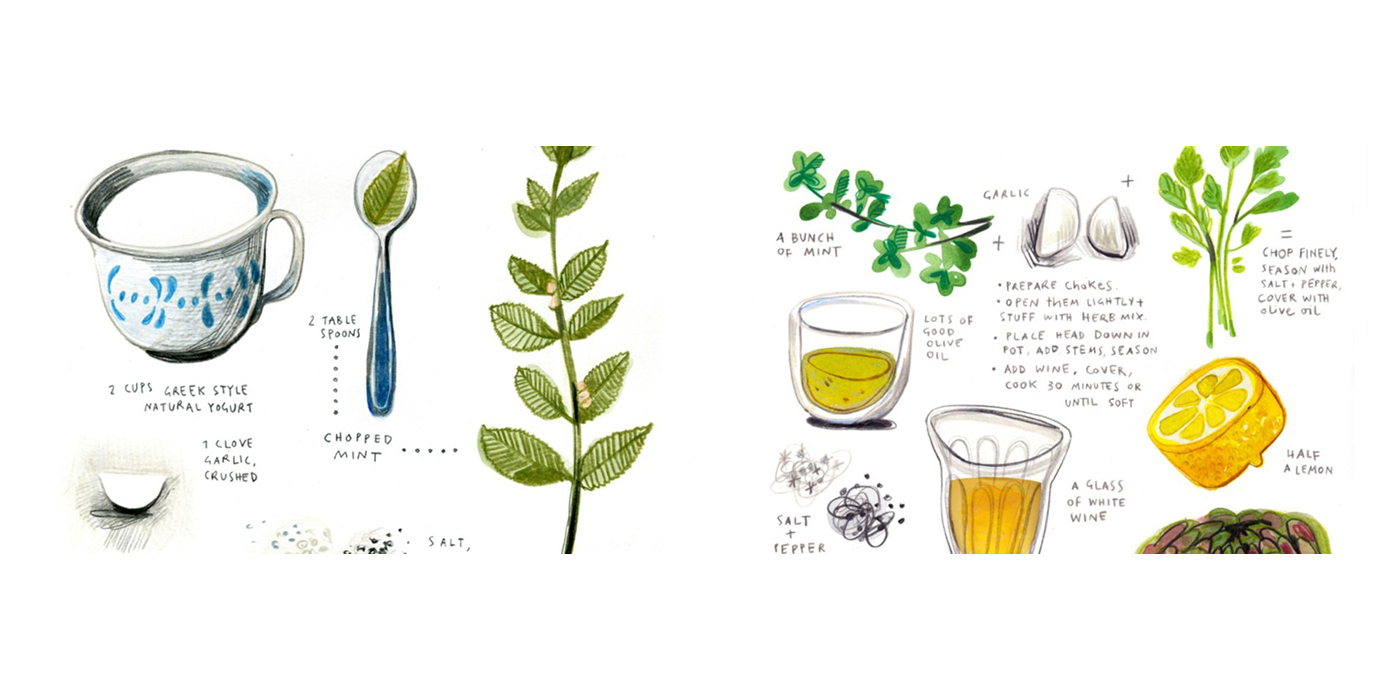 2 TABLE
SPOONS
2 CUPS GREEK STYLE
NATURAL YOGURT
1 CLOVE
GARLIC,
CRUSHED
CHOPPED
MINT
SALT,
A BUNCH
OF MINT
GARLIC
+
+
=
CHOP FINELY,
SEASON WITH
SALT + PEPPER,
COVER WITH
OLIVE OIL
LOTS OF
GOOD
OLIVE
OIL
• PREPARE CHOKES.
• OPEN THEM LIGHTLY +
STUFF WITH HERB MIX.
• PLACE HEAD DOWN IN
POT, ADD STEMS, SEASON
• ADD WINE, COVER,
COOK 30 MINUTES OR
UNTIL SOFT
HALF
A LEMON
A GLASS
OF WHITE
WINE
SALT
+
PEPPER